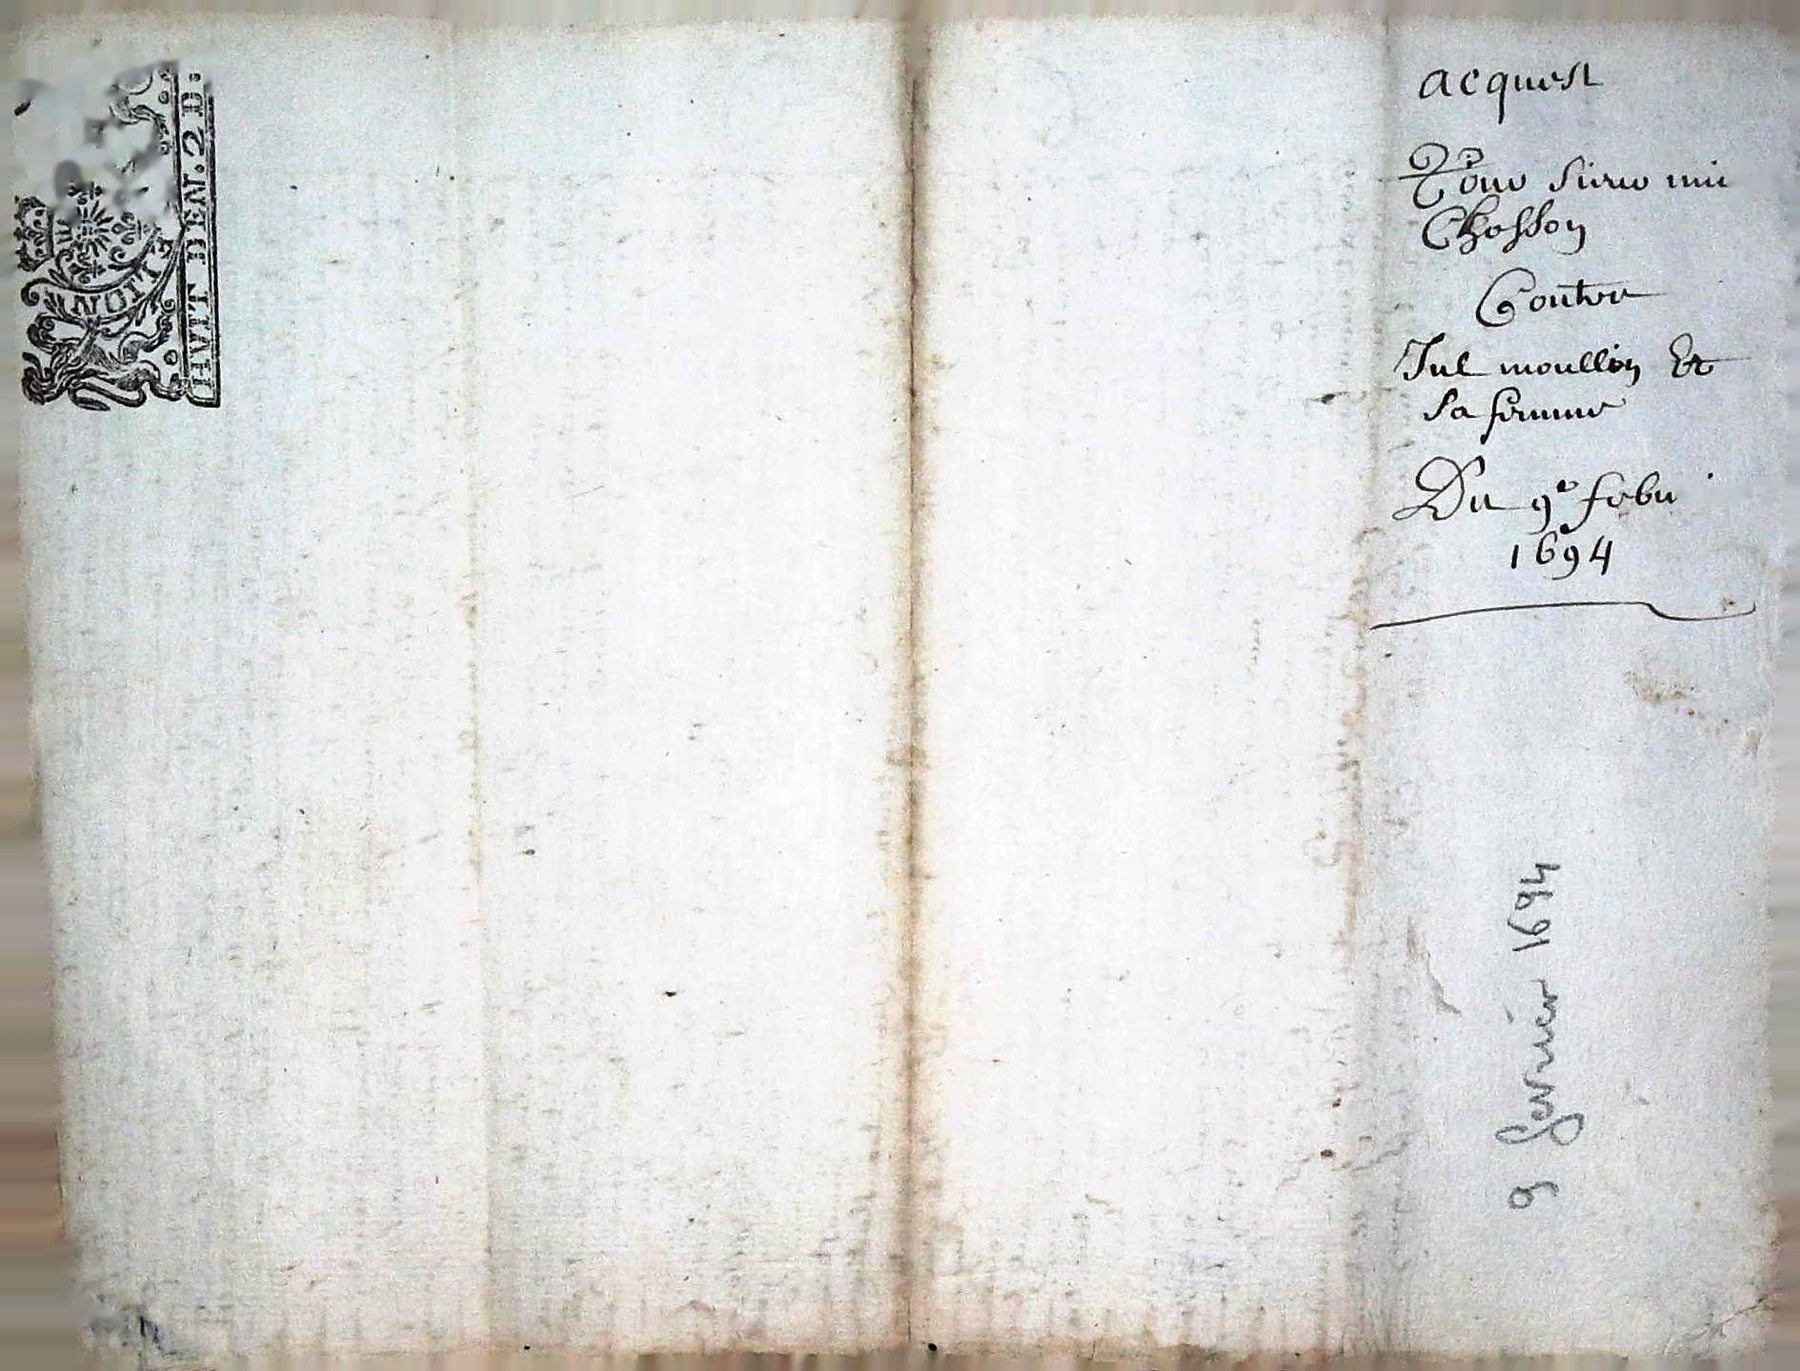 HVIT DEN. 2 D.
NOTI
acquest
Pour sieur
Chosson
Contre
Jul moullin Et
sa femme
Du 9e febu
1694
9 fevrier 1694